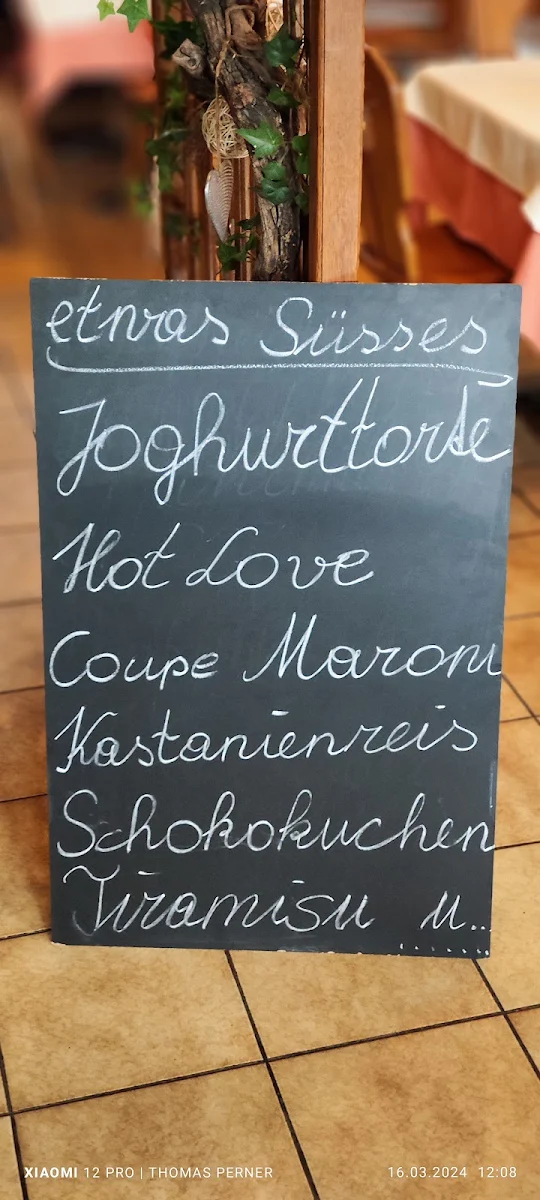 etwas Süsses
Joghurttorte
Hot Love
Coupe Maroni
Kastanienreis
Schokokuchen
Tiramisu u..
XIAOMI 12 PRO | THOMAS PERNER 16.03.2024 12:08